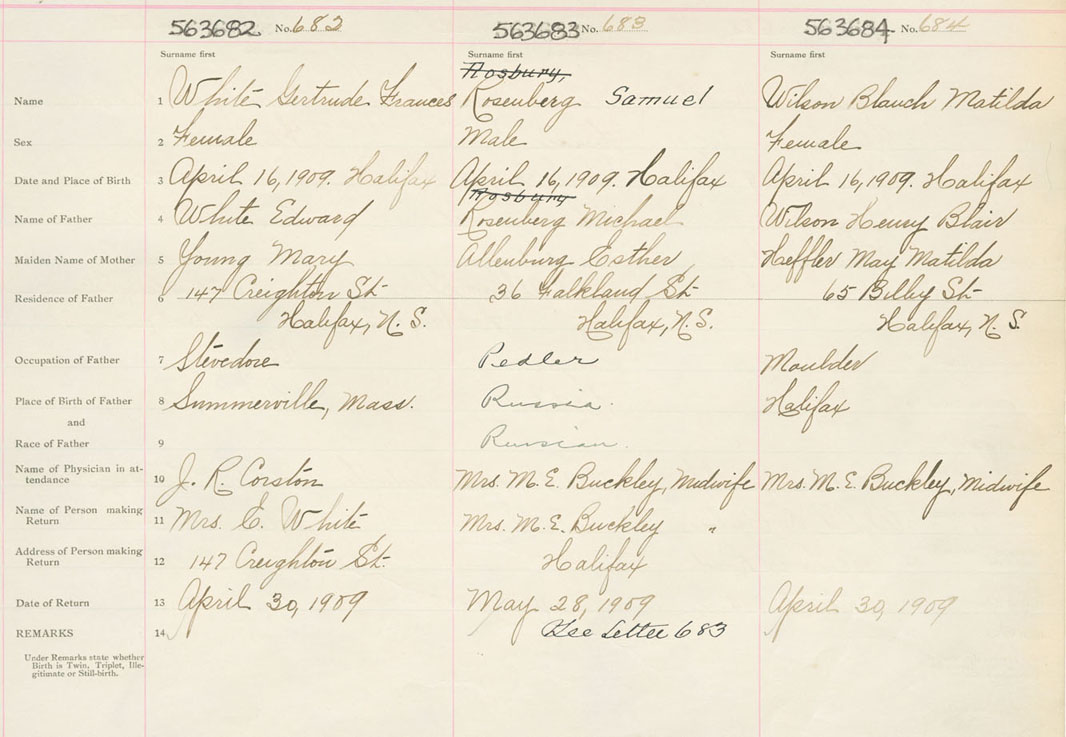 563682 No. 682 563683 No. 683 563684 No. 684
Surname first Surname first Surname first
Rosbury,
Name 1 White Gertrude Frances Rosenberg Samuel Wilson Blauch Matilda
Sex 2 Female Male Female
Date and Place of Birth 3 April 16, 1909. Halifax April 16, 1909. Halifax April 16, 1909. Halifax
Rosbury
Name of Father 4 White Edward Rosenberg Michael Wilson Henry Blair
Maiden Name of Mother 5 Young Mary Allenburg Esther Heffler May Matilda
Residence of Father 6 147 Creighton St. 36 Falkland St. 65 Bilby St.
Halifax, N. S. Halifax, N. S. Halifax, N. S.
Occupation of Father 7 Stevedore Pedler Moulder
Place of Birth of Father 8 Summerville, Mass. Russia. Halifax
and
Race of Father 9 Russian.
Name of Physician in at-
tendance 10 J. R. Corston Mrs. M. E. Buckley, Midwife Mrs. M. E. Buckley, Midwife
Name of Person making
Return 11 Mrs. E. White Mrs. M. E. Buckley "
Address of Person making
Return 12 147 Creighton St. Halifax
Date of Return 13 April 30, 1909 May 28, 1909 April 30, 1909
REMARKS 14 See Letter 683
Under Remarks state whether
Birth is Twin, Triplet, Ille-
gitimate or Still-birth.